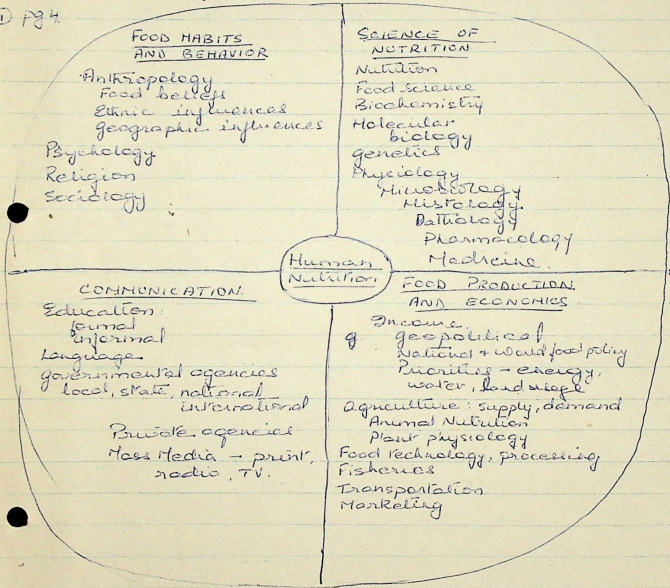 ① pg 4.
FOOD HABITS
AND BEHAVIOR
Anthropology
Food beliefs
Ethnic influences
Geographic influences
Psychology
Religion
Sociology
SCIENCE OF
NUTRITION
Nutrition
Food science
Biochemistry
Molecular
biology
Genetics
Physiology
Microbiology
Histology
Pathology
Pharmacology
Medicine.
Human
Nutrition
COMMUNICATION.
Education:
formal
informal
Language
Governmental agencies
local, state, national
international
Private agencies
Mass Media - print,
radio, TV.
FOOD PRODUCTION
AND ECONOMICS
Income
g geopolitical
National & World food policy
Priorities - energy,
water, land usage
Agriculture: supply, demand
Animal Nutrition
Plant physiology
Food technology, processing
Fisheries
Transportation
Marketing